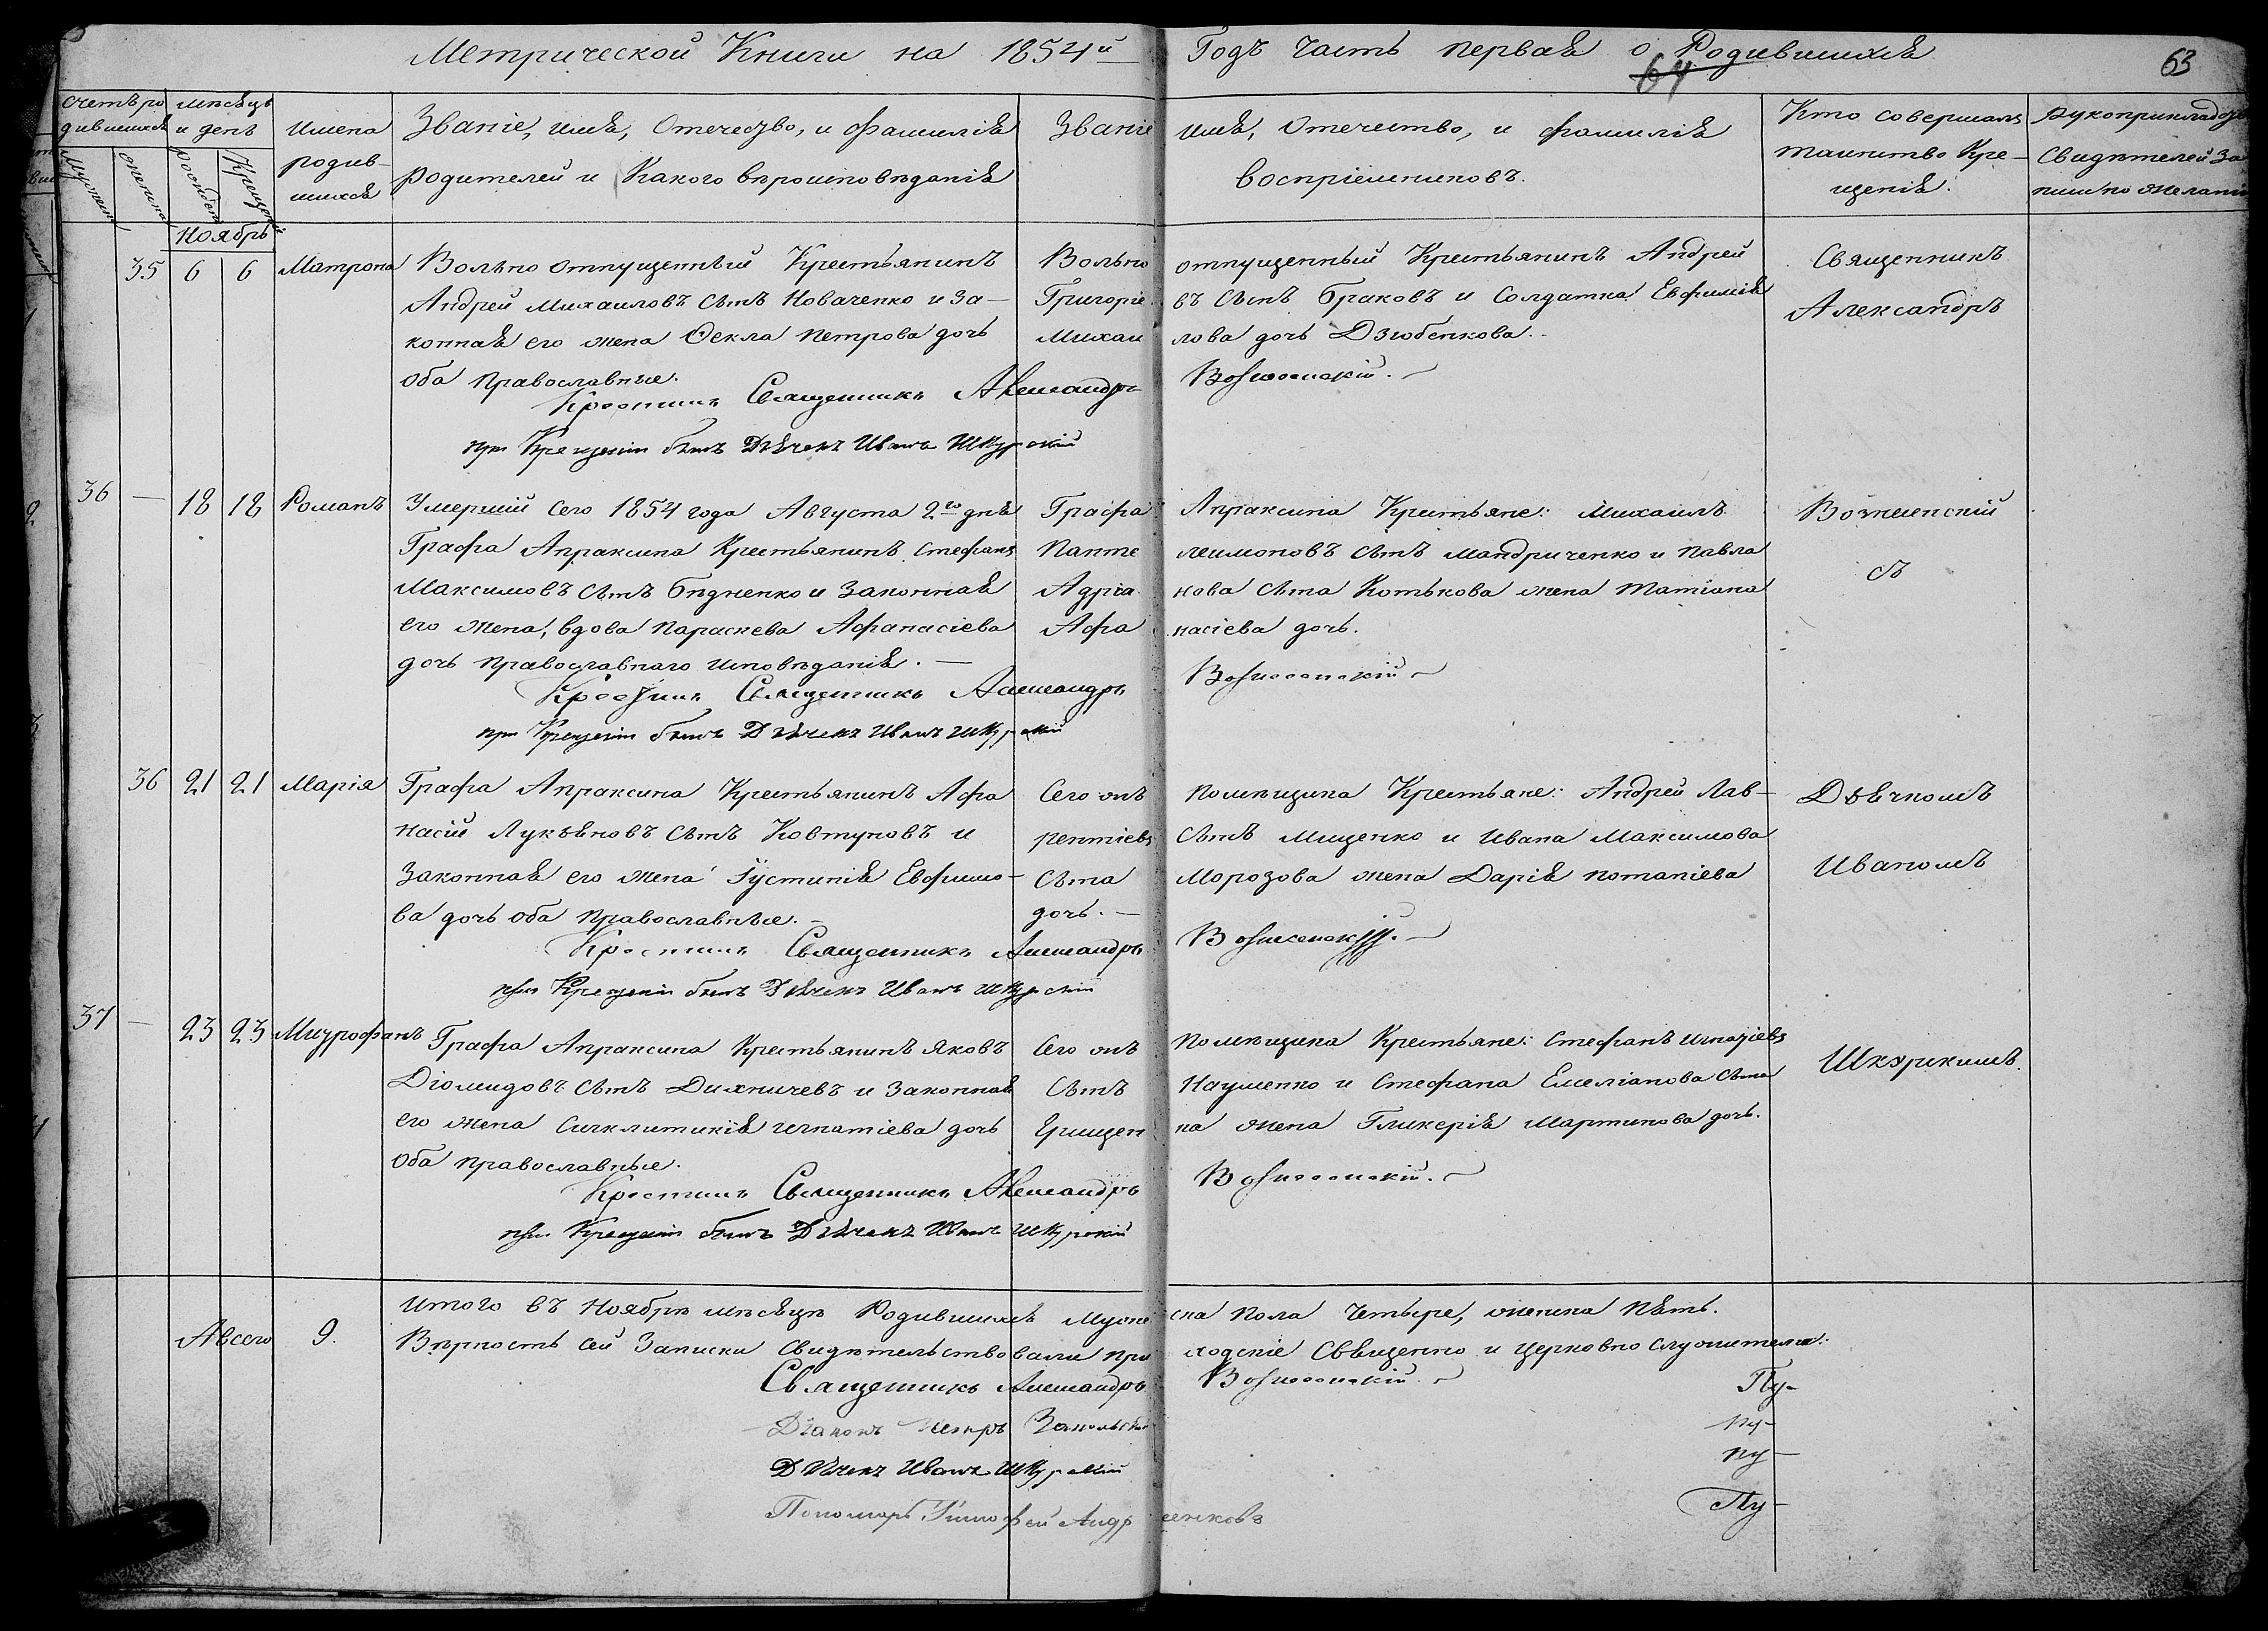 Метрической Книги на 1854й Годъ Часть первая о Родившихся
64
63
счетъ ро
дившихся
мѣсяцъ
и день
Мужска
женска
рождені
Крещені
Имена
родив-
шихся
Званіе, имя, Отечество, и Фамилія
родителей и Какого вѣроисповѣданія
Званіе имя, Отечество, и фамилія
воспріемниковъ.
Кто совершалъ
таинство Кре-
щенія.
Рукоприклад
Свидѣтелей за
писи по желані
Ноябрь
35 6 6 Матрона
Вольно отпущенный Крестьянинъ
Андрей Михаиловъ сынъ Новаченко и за-
конная его жена Ѳекла Петрова дочь
оба православные.
Вольно отпущенный Крестьянинъ Андрей
Григоріевъ сынъ Браковъ и Солдатка Евфимія
Михаилова дочь Дзюбенкова.
Крестилъ Священникъ Александръ Вознесенскій.
при Крещеніи былъ Дьячекъ Иванъ Шкурскій
Священникъ
Александръ
36 — 18 18 Романъ
Умершій сего 1854 года Августа 2го дня
Графа Апраксина Крестьянинъ Стефанъ
Максимовъ сынъ Бѣдненко и законная
его жена, вдова Параскева Афанасіева
дочь православнаго исповѣданія. —
Графа Апраксина Крестьяне: Михаилъ
Пантелеимоновъ сынъ Мандриченко и Павла
Адріанова сына Котькова жена Татіана
Афанасіева дочь.
Крестилъ Священникъ Александръ Вознесенскій
при Крещеніи былъ Дьячекъ Иванъ Шкурскій
Вознесенскій
съ
36 21 21 Марія
Графа Апраксина Крестьянинъ Афа
насій Лукьяновъ сынъ Ковтуновъ и
Законная его жена Іустинія Евфимо-
ва дочь оба православные. —
Сего онъ помѣщика Крестьяне: Андрей Лав-
рентіевъ сынъ Мищенко и Ивана Максимова
сына Морозова жена Дарія Потапіева
дочь. —
Крестилъ Священникъ Александръ Вознесенскій.
при Крещеніи былъ Дьячекъ Иванъ Шкурскій
Дьячкомъ
Иваномъ
37 — 23 23 Митрофанъ
Графа Апраксина Крестьянинъ Яковъ
Діомидовъ сынъ Дияничевъ и законная
его жена Сигклитикія Игнатіева дочь
Оба православные.
Сего онъ помѣщика Крестьяне: Стефанъ Игнатіевъ
сынъ Науменко и Стефана Емеліанова сына
Грищенка жена Гликерія Мартинова дочь.
Крестилъ Священникъ Александръ Вознесенскій.
при Крещеніи былъ Дьячекъ Иванъ Шкурскій
Шкурскимъ.
Авсего 9.
Итого въ Ноябрѣ мѣсяцѣ Родившихся Мужеска пола Четыре, женска пять.
Вѣрность сей Записки свидѣтельствовали приходскіе Священно и церковно служители:
Священникъ Александръ Вознесенскій.
Діаконъ Петръ
Дьячекъ Иванъ Шкурскій
Пономарь Тимофей Андреенковъ
Пу-
пу-
пу-
Пу-